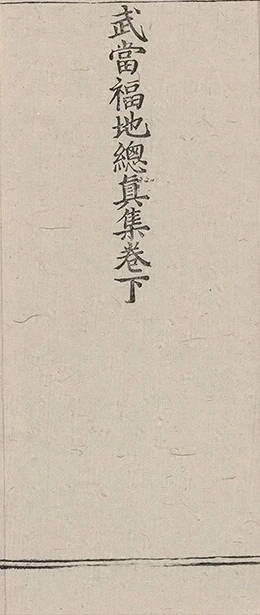 武當福地總真集卷下